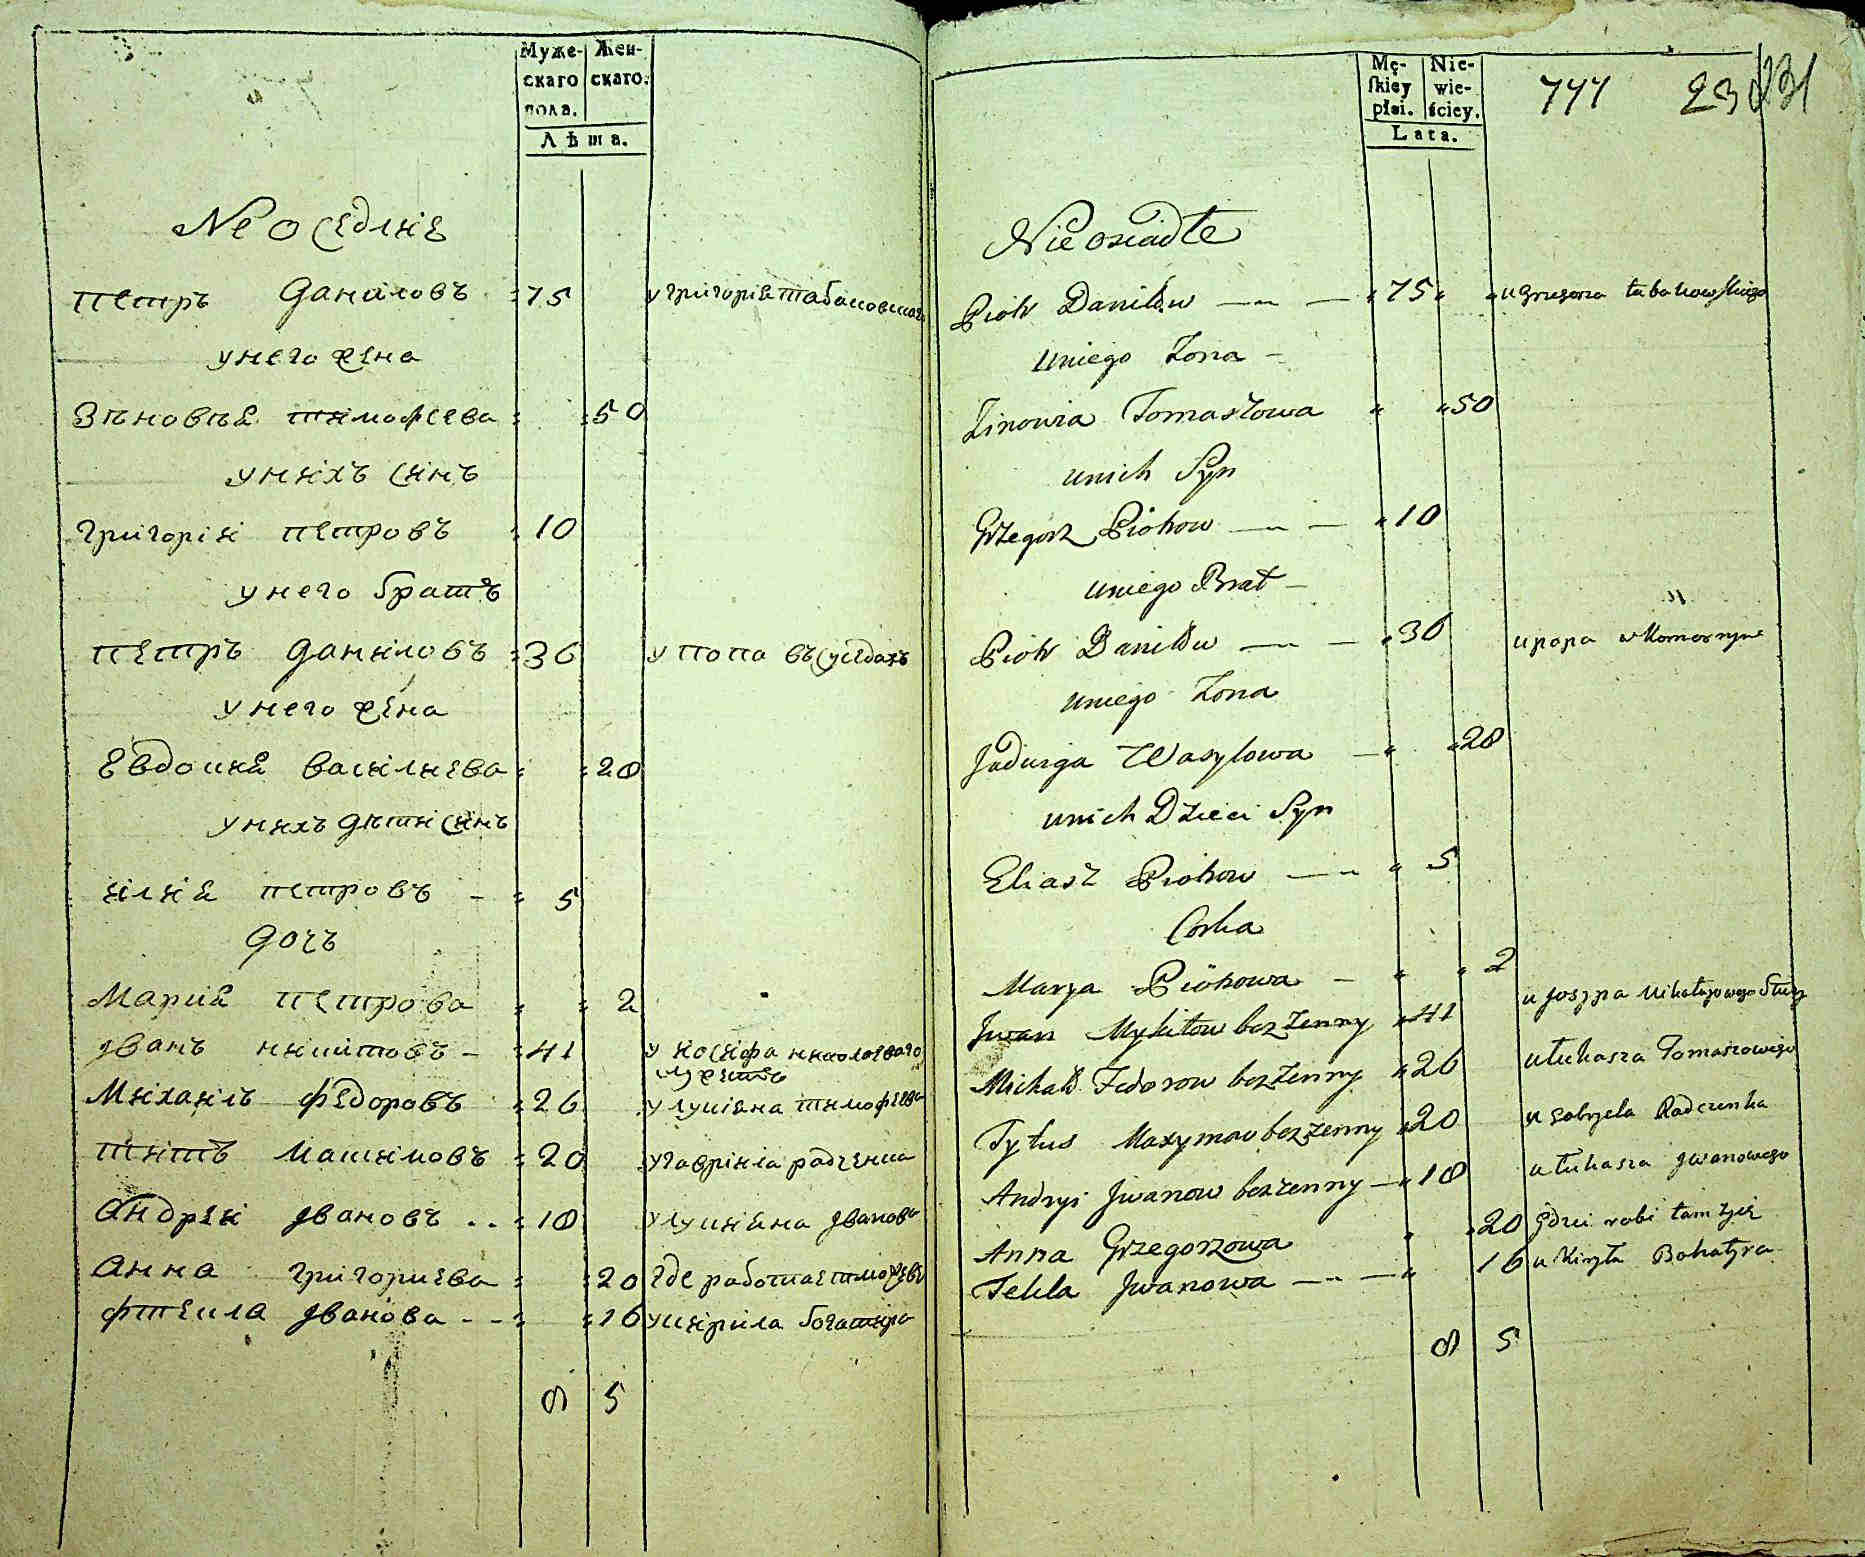 Муже-
скаго
пола.
Жен-
скаго.
Лѣта.
Неоседліе
петръ Даниловъ 75 у григорія табаковскаго
унего жена
Зѣновѣя тимофеева 50
унихъ синъ
григорій петровъ 10
унего братъ
петръ Даниловъ 36 у попа въ суседахъ
унего жена
Евдокия василиева 28
унихъ дѣти синъ
илия петровъ 5
дочъ
Мария петрова 2
Иванъ никитовъ 41 у иосифа николаеваго
служитъ
Михаилъ федоровъ 26 у лукіяна тимофеева
титъ Макимовъ 20 у гавриіла радченка
Андрей Ивановъ 18 у лукияна Иванова
Анна григориева 20 где работает
фтекла Иванова 16 у кирила богатиря
8 5
Mę-
skiey
płci.
Nie-
wie-
ściey.
Lata.
777 23 231
Nie osiadłe
Piotr Daniłow 75 u Grzegorza tabakowskiego
uniego Żona
Zinowia Tomaszowa 50
unich Syn
Grzegorz Piotrow 10
uniego Brat
Piotr Daniłow 36 u popa w Komornym
uniego Żona
Jadwiga Wasylowa 28
unich Dzieci Syn
Eliasz Piotrow 5
Corka
Marya Piotrowa 2
Jwan Mykitow bezżenny 41 u Josypa Mikołajowego Służy
Michał Fedorow bezżenny 26 u Łukasza Tomaszowego
Tytus Maxymow bezżenny 20 u Gabryela Radczenka
Andryi Jwanow bezżenny 18 u Łukasza Jwanowego
Anna Grzegorzowa 20 gdzei robi tam żyie
Tekla Jwanowa 16 u Kiryła Bohatyra
8 5